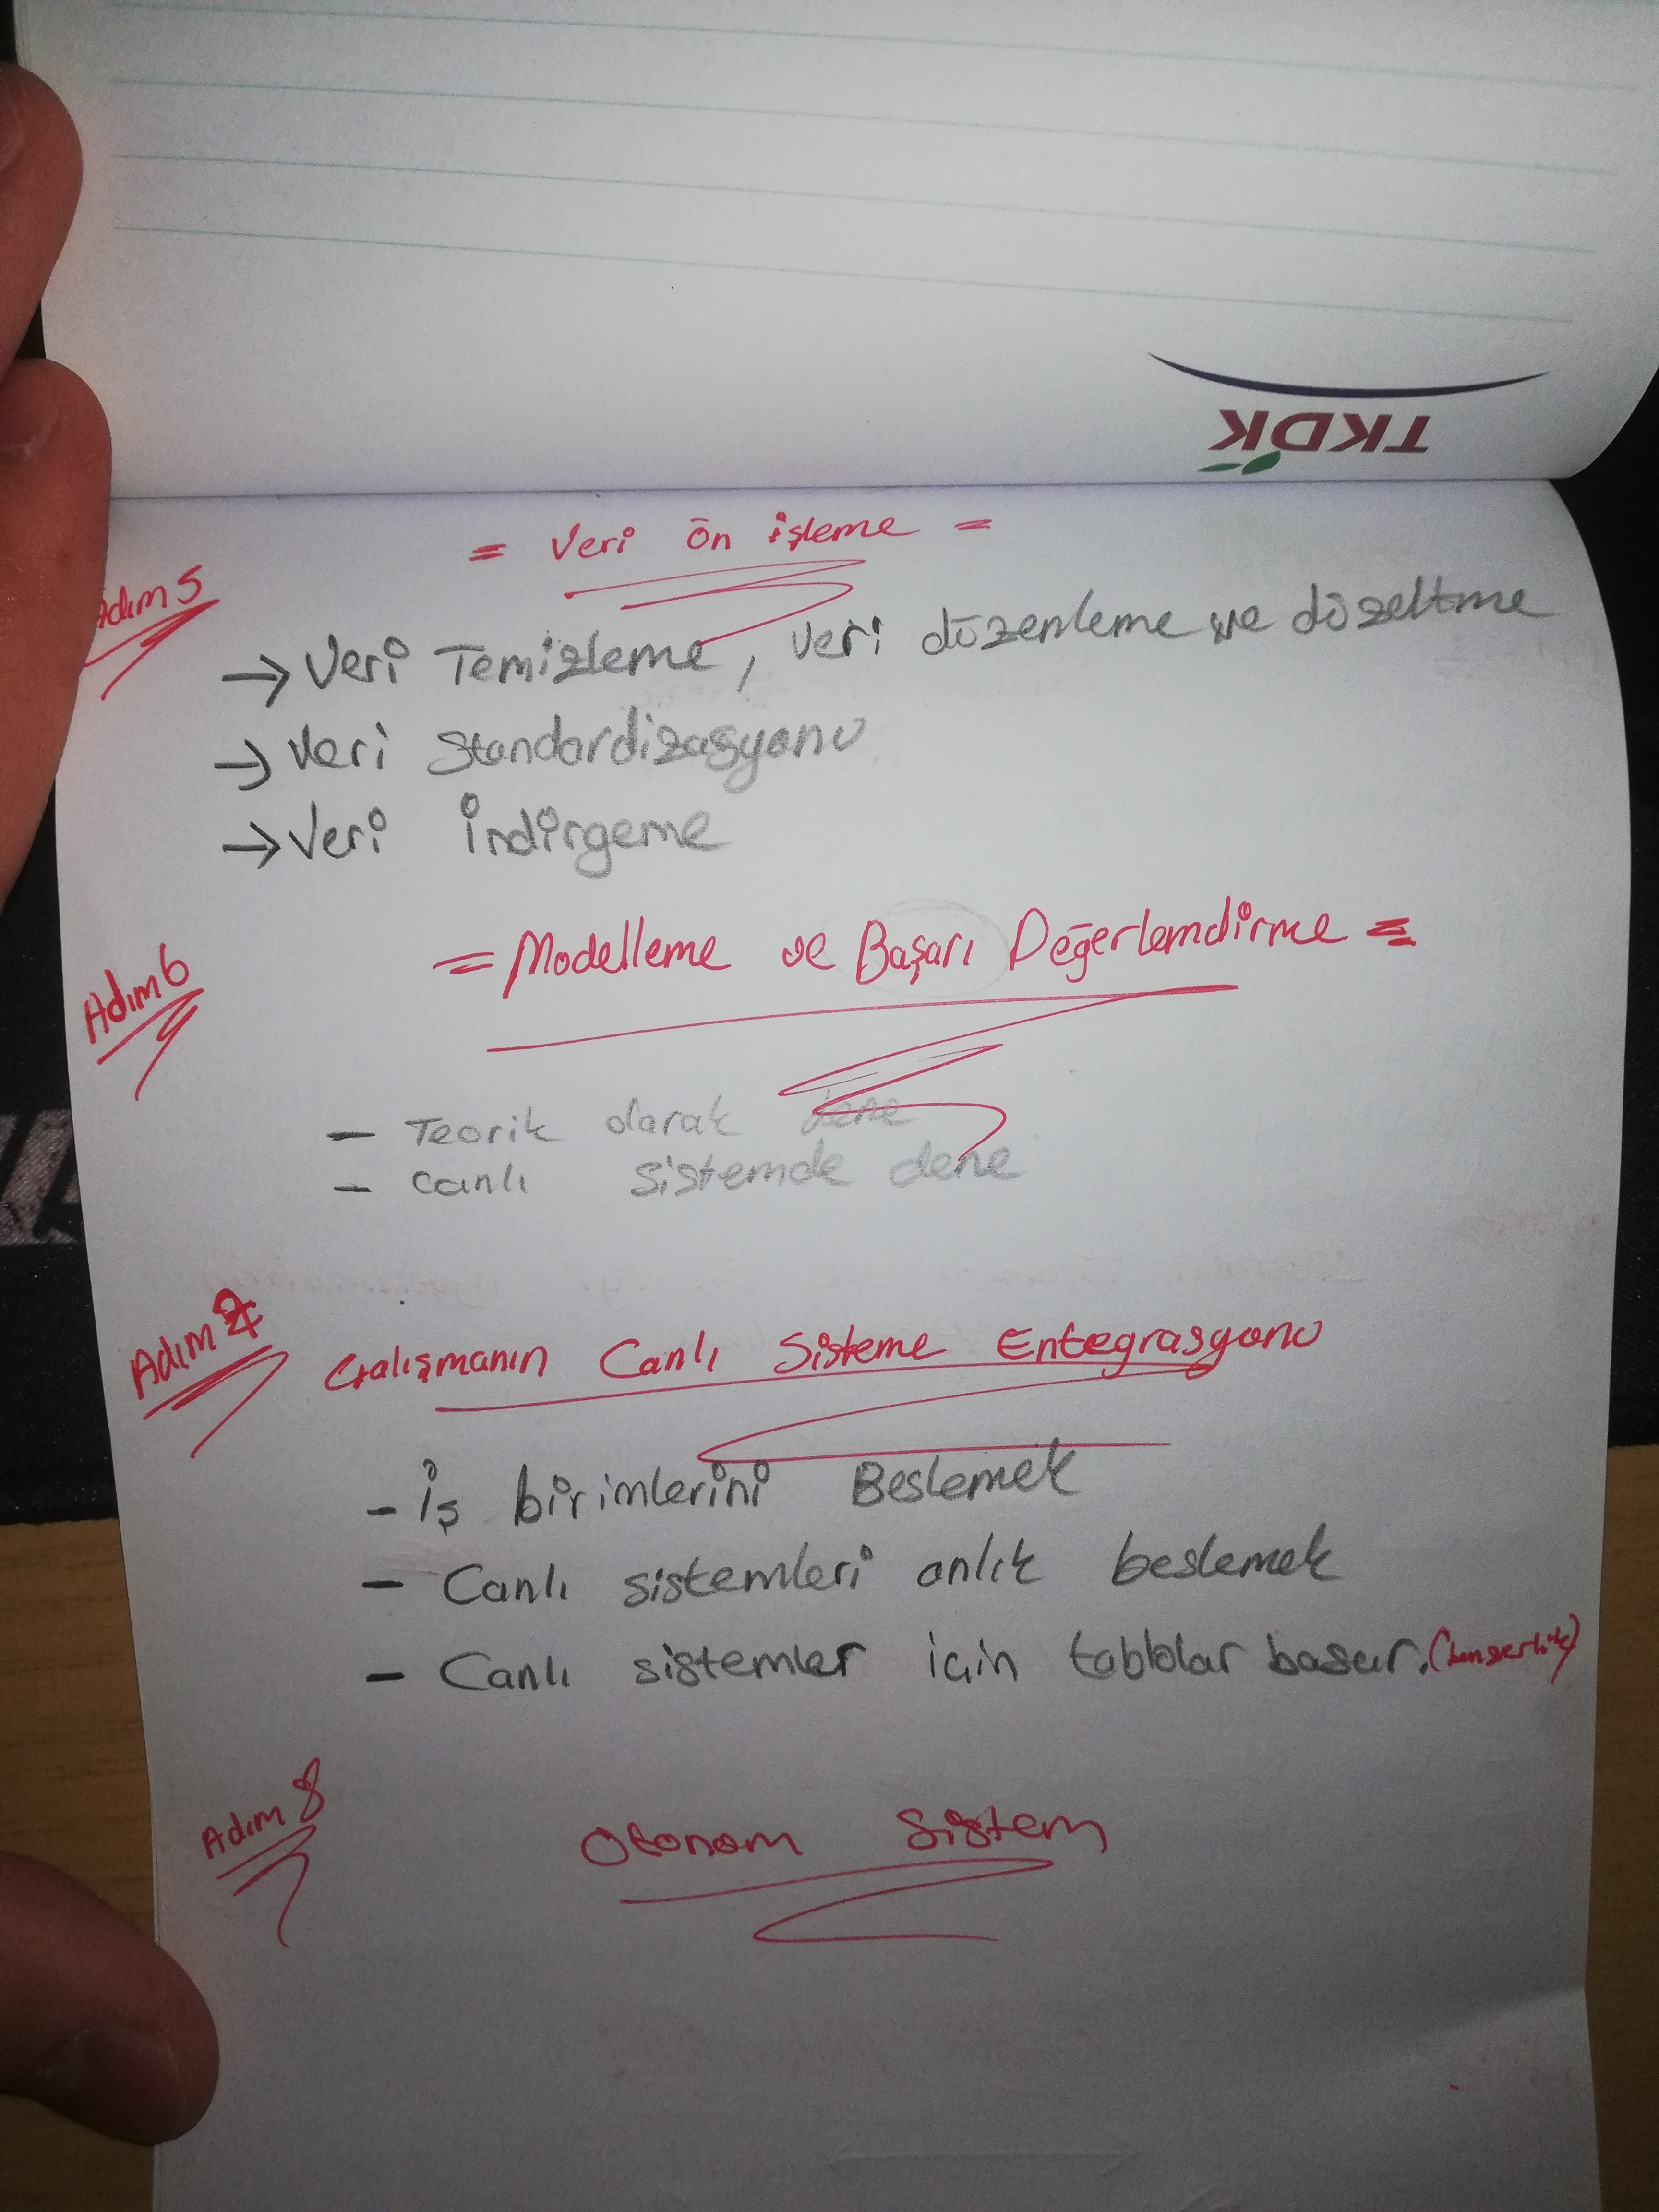 TKDK
= Veri Ön işleme =
Adım 5
→ Veri Temizleme, Veri düzenleme ve düzeltme
→ Veri Standardizasyonu
→ Veri İndirgeme
Adım 6
= Modelleme ve Başarı Değerlemdirme =
- Teorik olarak dene
- Canlı sistemde dene
Adım 7
Çalışmanın Canlı Sisteme Entegrasyonu
- İş birimlerini Beslemek
- Canlı sistemleri anlık beslemek
- Canlı sistemler için tablolar basar.
Adım 8
Otonom Sistem